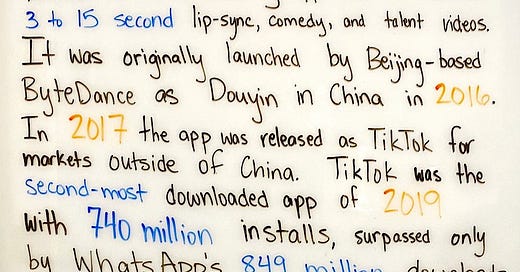 3 to 15 second lip-sync, comedy, and talent videos.
It was originally launched by Beijing-based
ByteDance as Douyin in China in 2016.
In 2017 the app was released as TikTok for
markets outside of China. TikTok was the
second-most downloaded app of 2019
with 740 million installs, surpassed only
by WhatsApp's 849 million downloads